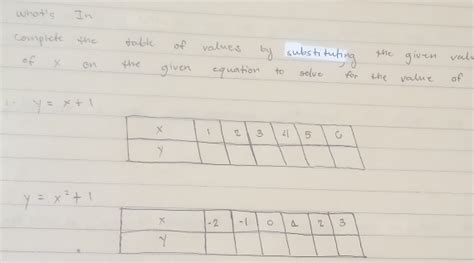 what's In
Complete the table of values by substituting the given
of x on the given equation to solve for the value of
y = x + 1
x 1 2 3 4 5 6
y
y = x² + 1
x -2 -1 0 1 2 3
y